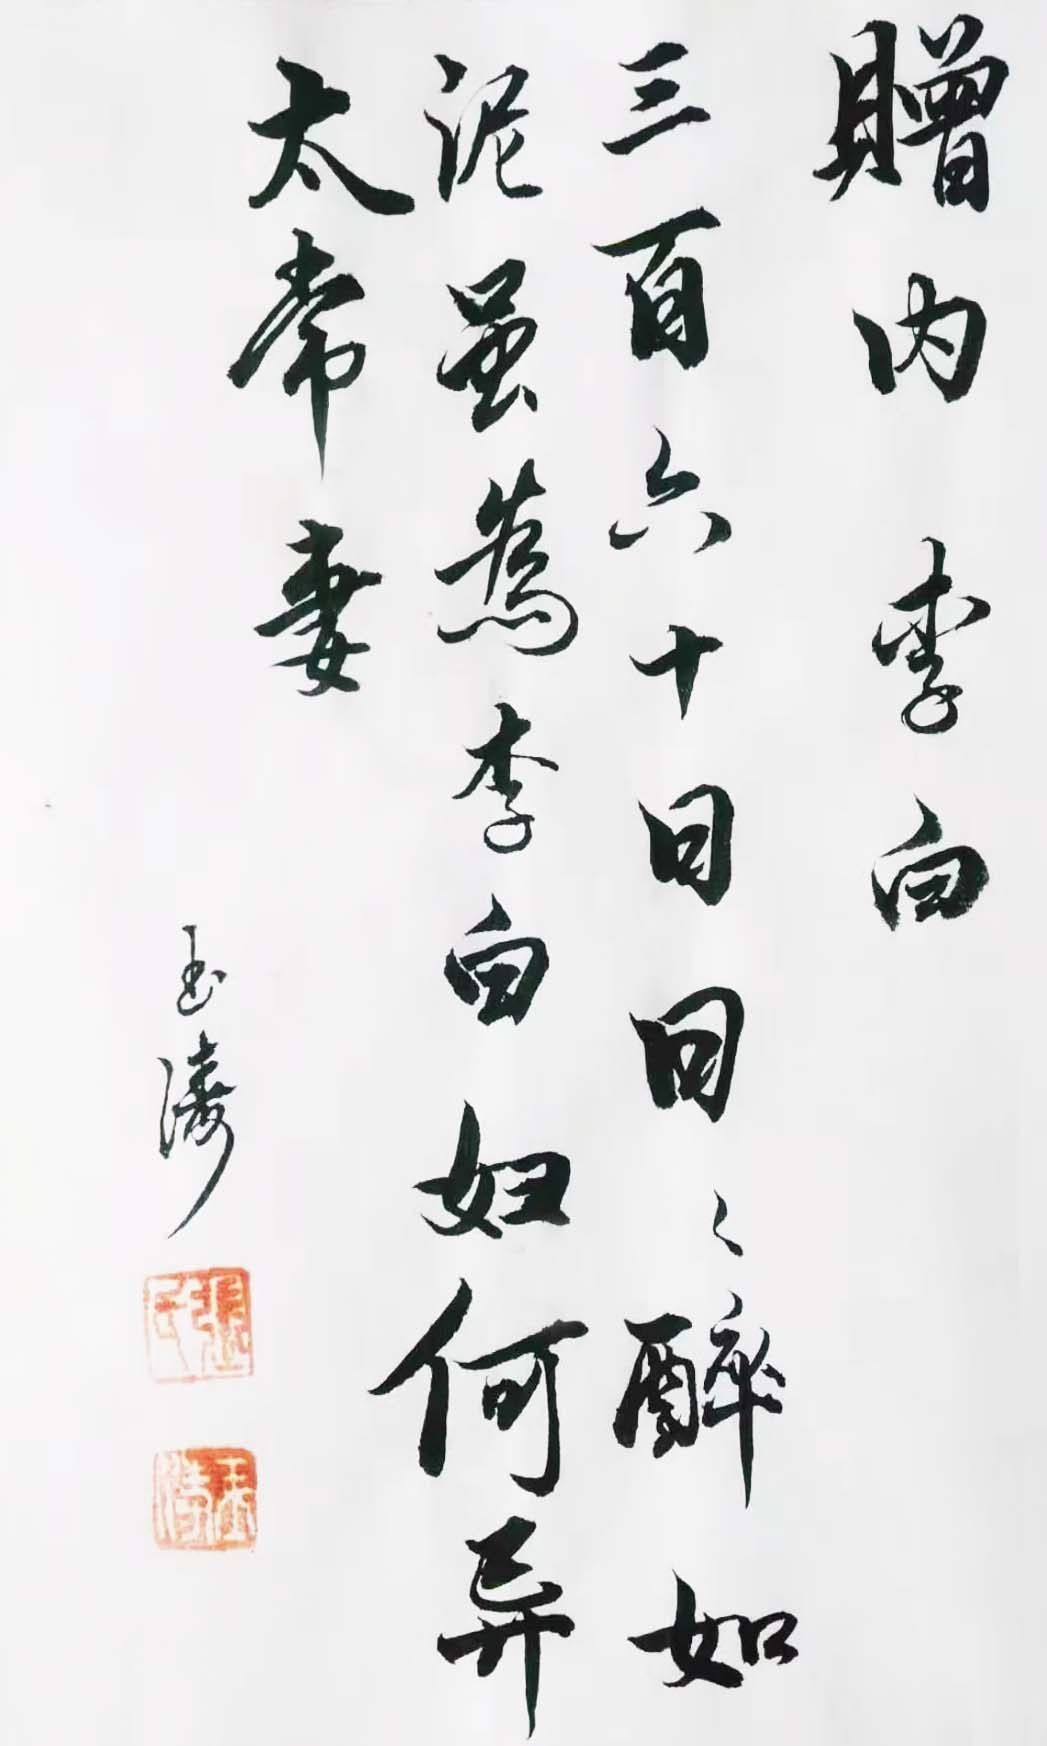 贈内 李白
三百六十日日〻醉如
泥虽為李白妇何异
太常妻
玉涛
張氏
玉涛